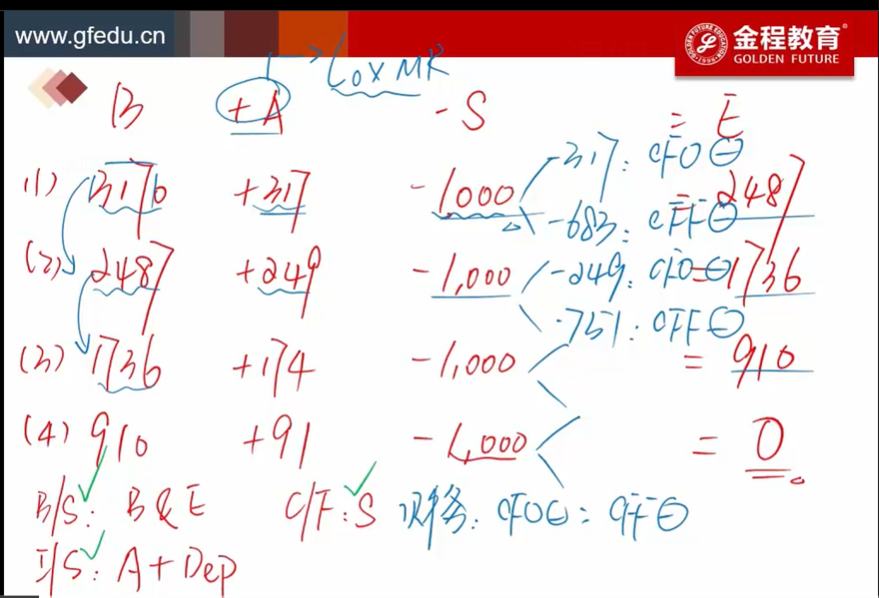 www.gfedu.cn
金程教育
GOLDEN FUTURE
LOXMR
B +A -S = E
(1) 3170 +317 -1,000 = 2487
-317: CFO ⊖
-683: CFF ⊖
(2) 2487 +249 -1,000 = 1736
-249: CFO ⊖
-751: CFF ⊖
(3) 1736 +174 -1,000 = 910
(4) 910 +91 -1,000 = 0
B/S: B & E C/F: S 财务: CFO⊖ = CFF⊖
I/S: A + Dep